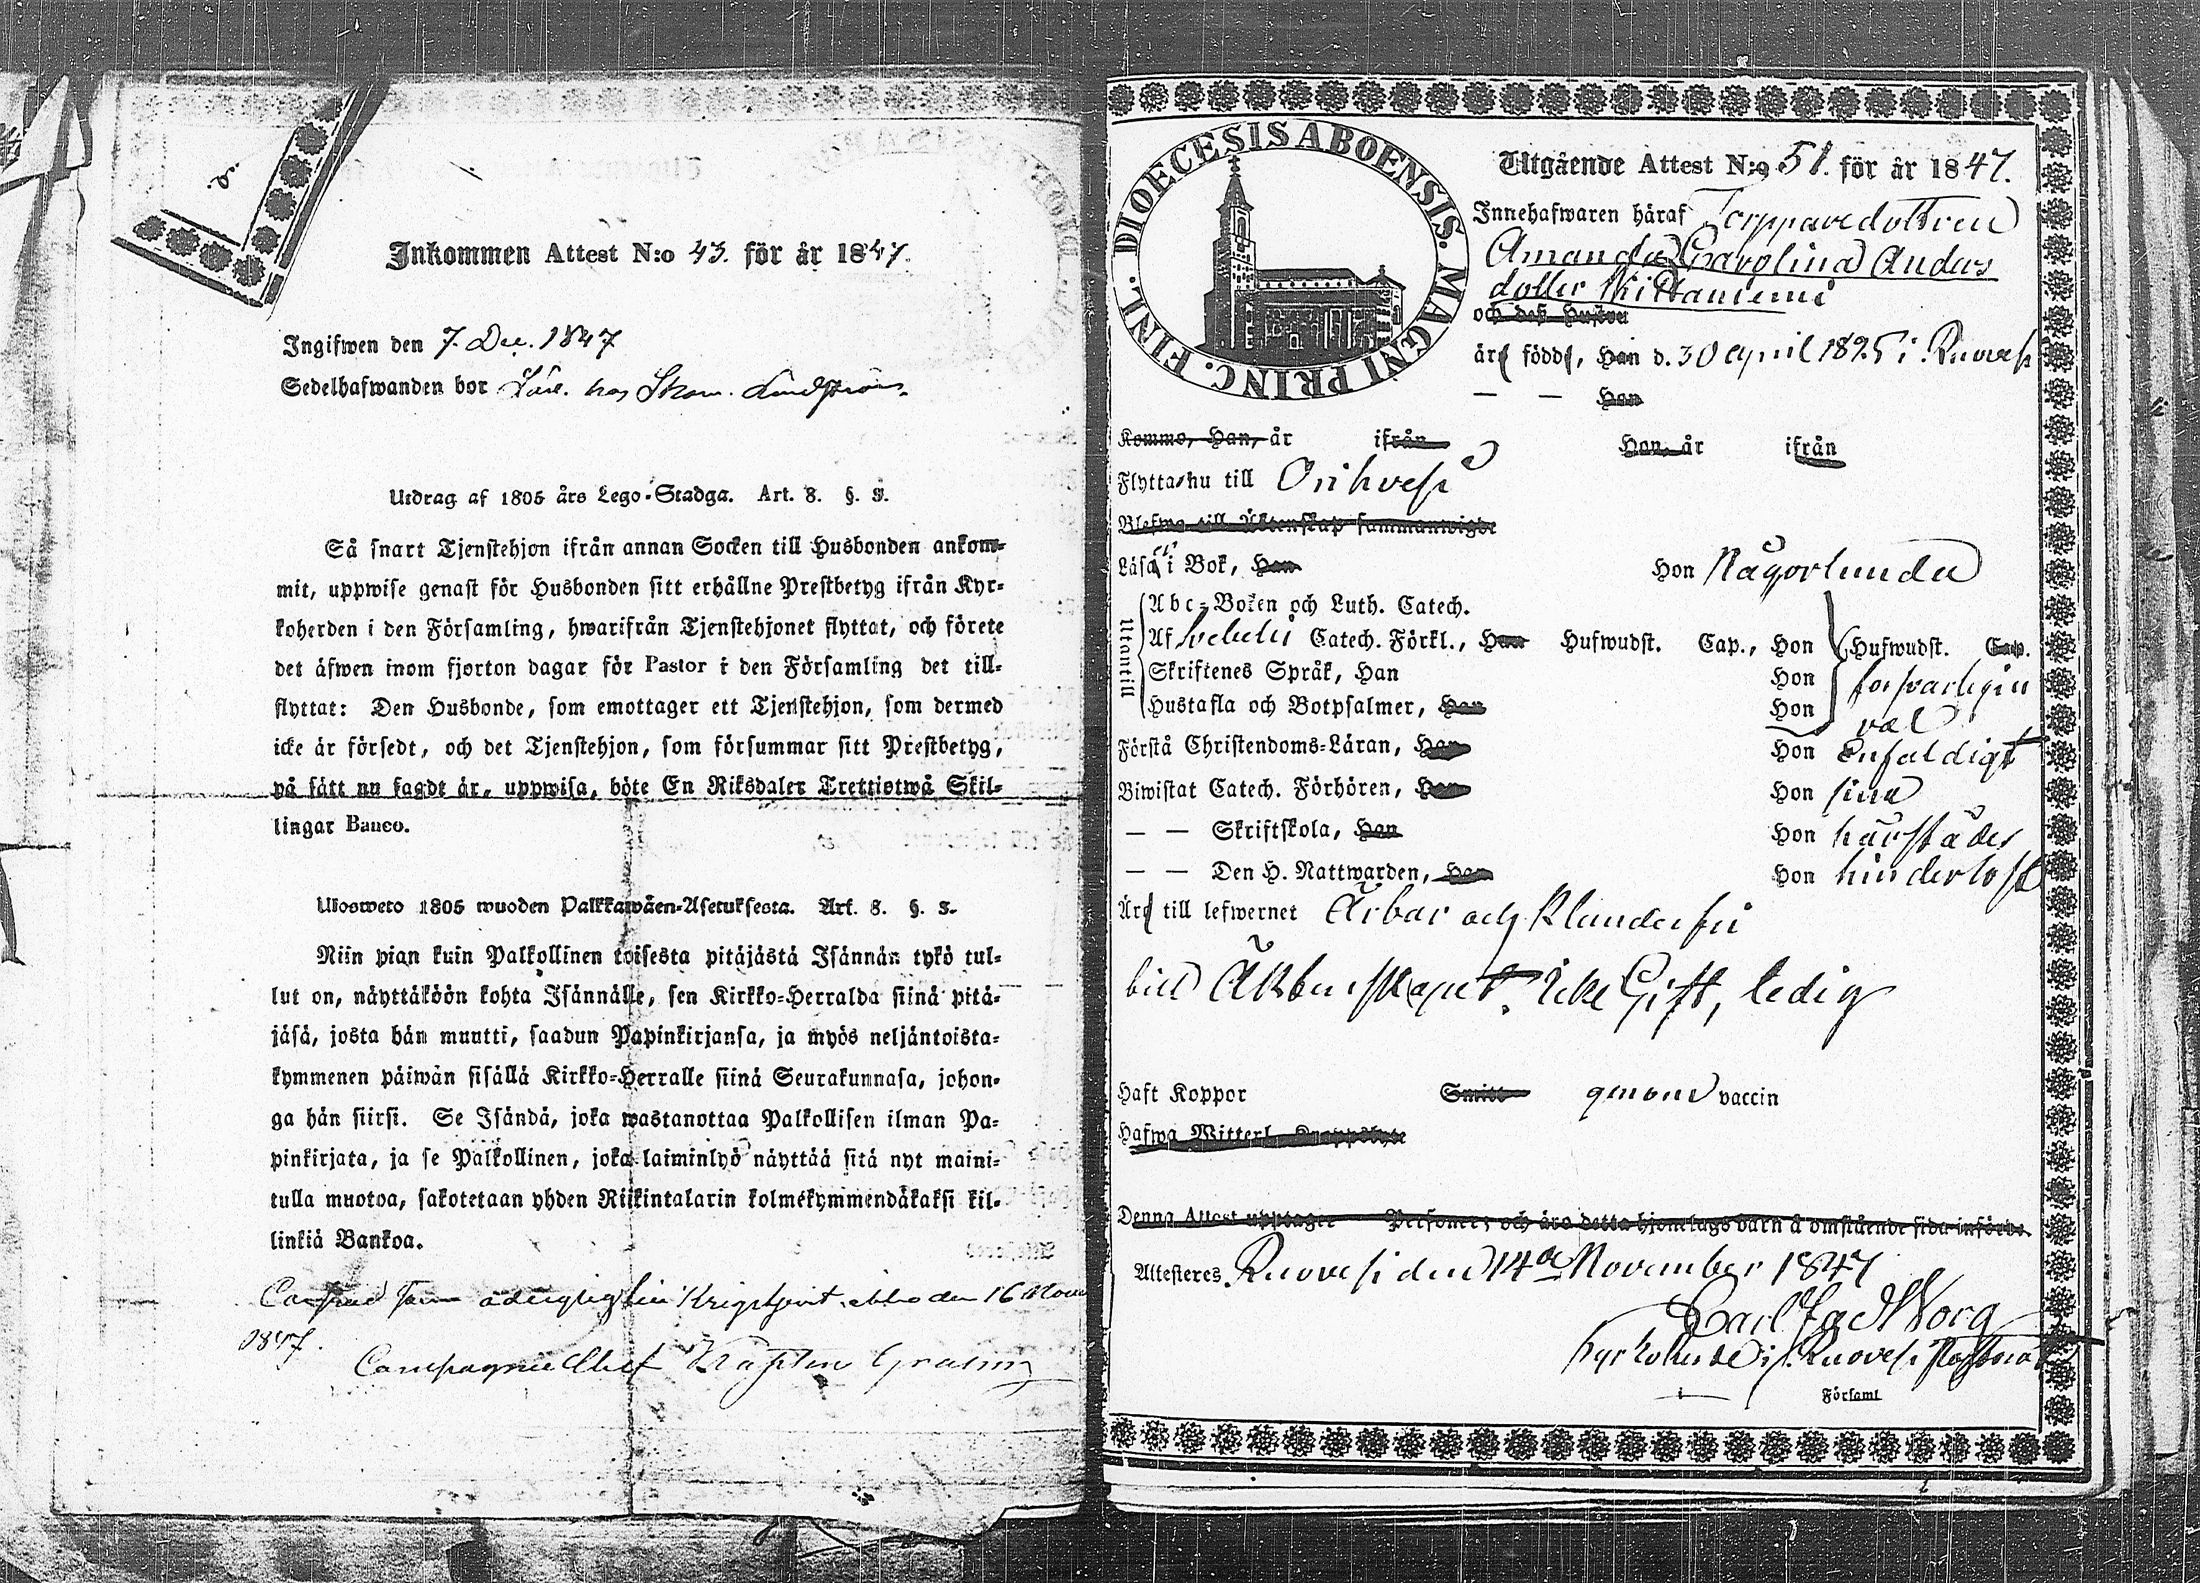 Inkommen Attest N:o 43. för år 1847.
Ingifwen den 7. Dec. 1847
Sedelhafwanden bor hos Lindström.
Utdrag af 1805 års Lego-Stadga. Art. 8. §. 3.
Så snart Tjenstehjon ifrån annan Socken till Husbonden ankom-
mit, uppwise genast för Husbonden sitt erhållne Prestbetyg ifrån Kyr-
koherden i den Församling, hwarifrån Tjenstehjonet flyttat, och förete
det äfwen inom fjorton dagar för Pastor i den Församling det till-
flyttat: Den Husbonde, som emottager ett Tjenstehjon, som dermed
icke är försedt, och det Tjenstehjon, som försummar sitt Prestbetyg,
på sätt nu sagdt är, uppwisa, böte En Riksdaler Trettiotwå Skil-
lingar Banco.
Ulosweto 1805 wuoden Palkkawäen-Asetuksesta. Art. 8. §. 3.
Niin pian kuin Palkollinen toisesta pitäjästä Isännän tykö tul-
lut on, näyttäköön kohta Isännälle, sen Kirkko-Herralda siinä pitä-
jäsä, josta hän muutti, saadun Papinkirjansa, ja myös neljäntoista-
kymmenen päiwän sisällä Kirkko-Herralle siinä Seurakunnasa, johon-
ga hän siirsi. Se Isändä, joka wastanottaa Palkollisen ilman Pa-
pinkirjata, ja se Palkollinen, joka laiminlyö näyttää sitä nyt maini-
tulla muotoa, sakotetaan yhden Riikintalarin kolmekymmendäkaksi kil-
linkiä Bankoa.
den 16 Nov
1847.
Compagnie Chef
DIOECESIS ABOENSIS. MAGNI PRINC. FINL.
Utgående Attest N:o 51. för år 1847.
Innehafwaren häraf Torpparedottren
Amanda Carolina Anders
dotter
och dess Hustru
äro födde, Han d. 30 April 1825 i Ruovesi
— — Hon
Kommo, Han, år ifrån Hon, år ifrån
Flytta nu till Orihvesi
Blefwo till Äktenskap sammanwigde
Läsa i Bok, Han Hon Någorlunda
Utantill
Abc-Boken och Luth. Catech.
Af Svebelii Catech. Förkl., Han Hufwudst. Cap., Hon Hufwudst. Cap.
Skriftenes Språk, Han Hon försvarligen
Hustafla och Botpsalmer, Han Hon väl
Förstå Christendoms-Läran, Han Hon Enfaldigt
Biwistat Catech. Förhören, Han Hon sina
— — Skriftskola, Han Hon härstädes
— — Den H. Nattwarden, Han Hon hinderlöst
Äro till lefwernet Ärbar och klanderfri
till Äktenskapet. Icke Gift, ledig
Haft Koppor Smitt genom vaccin
Hafwa Witterl. Knappskyte
Denna Attest upptager Personer; och äro detta hjonelags barn å omstående sida införde.
Attesteres. Ruovesi den 14de November 1847
Carl Jac Worg
Kyrkoherde i Ruovesi Pastorat
Församl